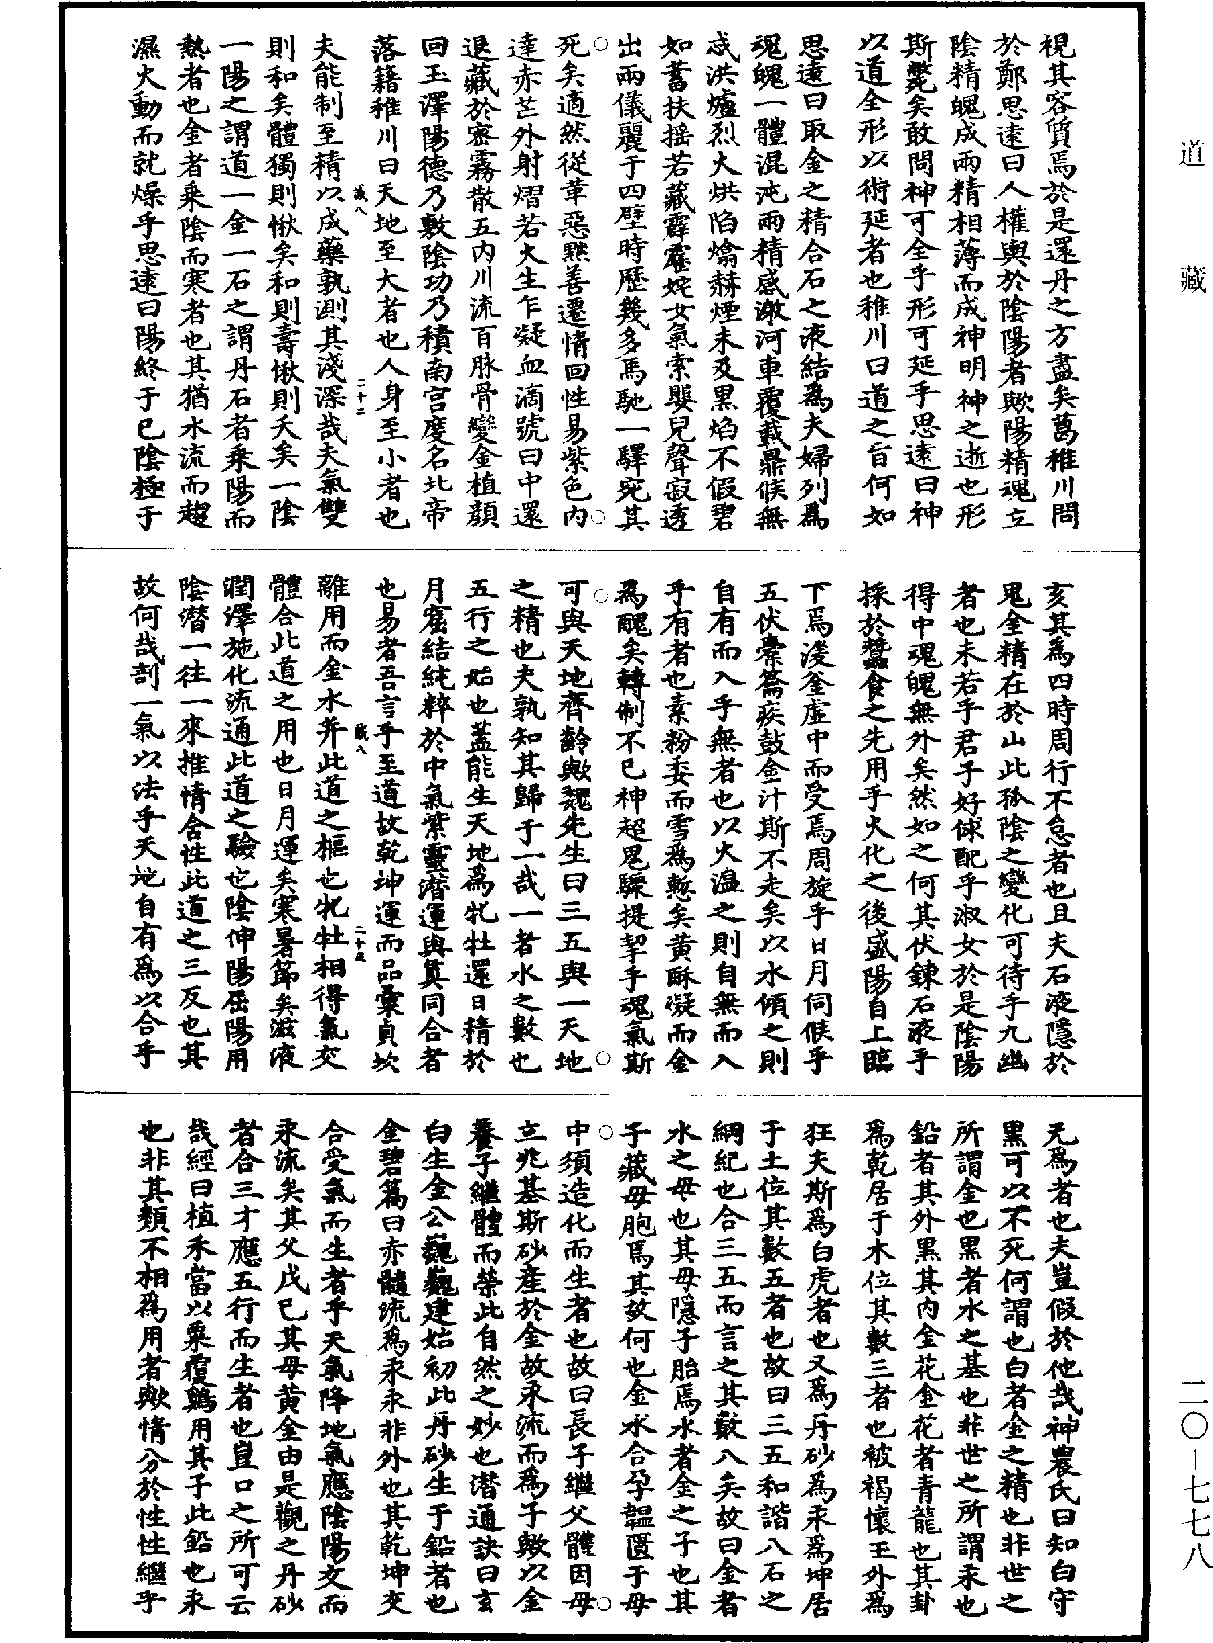 道藏
視其容質焉於是還丹之方盡矣葛稚川問
於鄭思遠曰人權輿於陰陽者歟陽精魂立
陰精魄成兩精相薄而成神明神之逝也形
斯斃矣敢問神可全乎形可延乎思遠曰神
以道全形以術延者也稚川曰道之旨何如
思遠曰取金之精合石之液結爲夫婦列爲
魂魄一體混沌兩精感激河車覆載鼎候無
忒洪爐烈火烘焰熻赫煙未及黑焰不假碧
如蓄扶搖若藏霹靂姹女氣索嬰兒聲寂透
出兩儀麗于四壁時歷幾多馬馳一驛宛其
死矣適然從革惡黜善遷情回性易紫色內
達赤芒外射熠若火生乍凝血滴號曰中還
退藏於密霧散五內川流百脉骨變金植顏
回玉澤陽德乃敷陰功乃積南宫度名北帝
落籍稚川曰天地至大者也人身至小者也
誠八 二十二
夫能制至精以成藥孰測其淺深哉夫氣雙
則和矣體獨則愀矣和則壽愀則夭矣一陰
一陽之謂道一金一石之謂丹石者乘陽而
熱者也金者乘陰而寒者也其猶水流而趨
濕火動而就燥乎思遠曰陽終于巳陰極于
亥其爲四時周行不怠者也且夫石液隱於
鬼金精在於山此孤陰之變化可待乎九幽
者也未若乎君子好俅配乎淑女於是陰陽
得中魂魄無外矣然如之何其伏鍊石液乎
採於蠶食之先用乎火化之後盛陽自上臨
下焉淩釜虛中而受焉周旋乎日月伺候乎
五伏橐籥疾鼓金汁斯不走矣以水傾之則
自有而入乎無者也以火溫之則自無而入
乎有者也素粉委而雪爲慙矣黃酥凝而金
爲醜矣轉制不已神超思驟提挈乎魂氣斯
可與天地齊齡歟魏先生曰三五與一天地
之精也夫孰知其歸于一哉一者水之數也
五行之始也蓋能生天地爲牝牡還日精於
月窟結純粹於中氣紫靈潛運與其同合者
也易者吾言乎至道故乾坤運而品彙貞坎
誠八 二十三
離用而金水并此道之樞也牝牡相得氣交
體合此道之用也日月運矣寒暑節矣滋液
潤澤施化流通此道之驗也陰伸陽屈陽用
陰潛一往一來推情合性此道之三反也其
故何哉剖一氣以法乎天地自有爲以合乎
无爲者也夫豈假於他哉神農氏曰知白守
黑可以不死何謂也白者金之精也非世之
所謂金也黑者水之基也非世之所謂汞也
鉛者其外黑其內金花金花者青龍也其卦
爲乾居于木位其數三者也被褐懷玉外爲
狂夫斯爲白虎者也又爲丹砂爲汞爲坤居
于土位其數五者也故曰三五和諧八石之
綱紀也合三五而言之其數八矣故曰金者
水之母也其母隱子胎焉水者金之子也其
子藏母胞焉其故何也金水合孕韞匱于母
中須造化而生者也故曰長子繼父體因母
立兆基斯砂產於金故汞流而爲子歟以金
養子繼體而榮此自然之妙也潛通訣曰玄
白生金公巍巍建始初此丹砂生于鉛者也
金碧篇曰赤髓流爲汞汞非外也其乾坤交
合受氣而生者乎天氣降地氣應陰陽交而
汞流矣其父戊己其母黃金由是觀之丹砂
者合三才應五行而生者也豈口之所可云
哉經曰植禾當以粟覆鷄用其子此鉛也汞
也非其類不相爲用者歟情分於性性繼乎
二〇—七七八